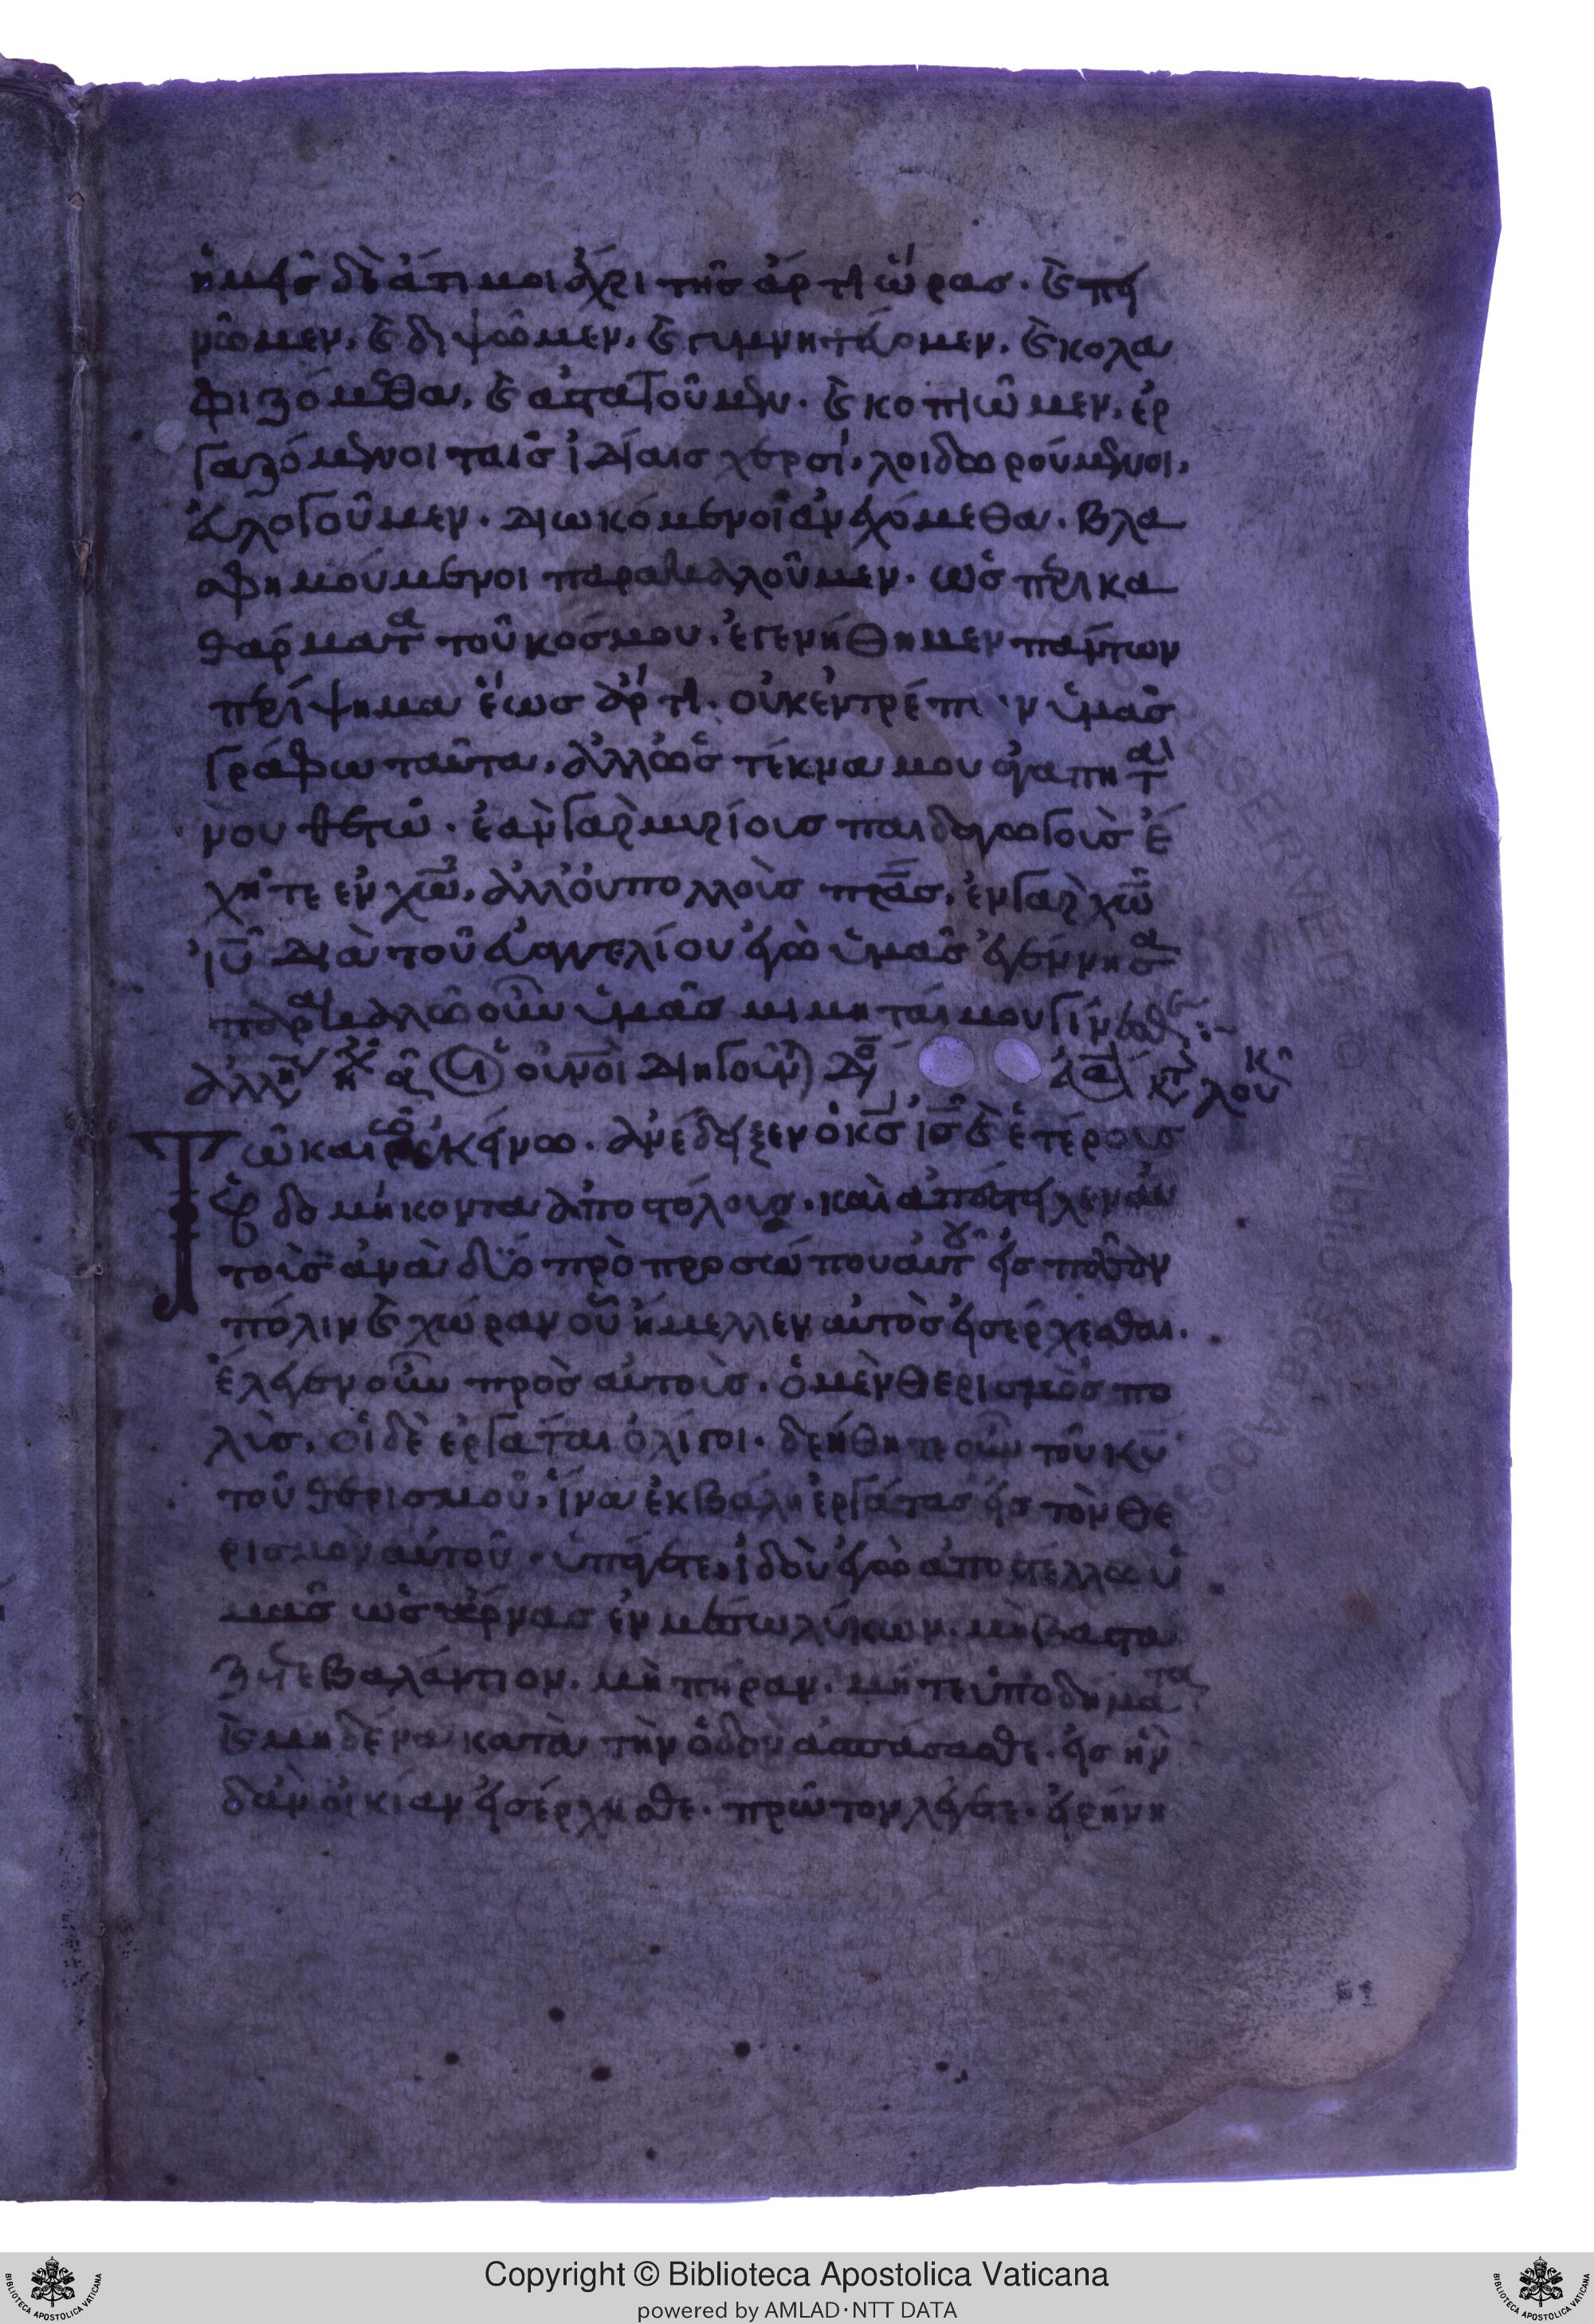 ἡμεῖς δὲ ἄτιμοι ἄχρι τῆς ἄρτι ὥρας. καὶ πει
νῶμεν, καὶ διψῶμεν, καὶ γυμνητεύομεν, καὶ κολα
φιζόμεθα, καὶ ἀστατοῦμεν. καὶ κοπιῶμεν, ἐρ
γαζόμενοι ταῖς ἰδίαις χερσί, λοιδωρούμενοι,
εὐλογοῦμεν. διωκόμενοι ἀνεχόμεθα. βλα
σφημούμενοι παρακαλοῦμεν. ὡς περικα
θάρματα τοῦ κόσμου. ἐγενήθημεν πάντων
περίψημα ἕως ἄρτι. οὐκ ἐντρέπων ὑμᾶς
γράφω ταῦτα, ἀλλ' ὡς τέκνα μου ἀγαπητὰ
νουθετῶ. ἐὰν γὰρ μυρίους παιδαγωγοὺς ἔ
χητε ἐν χω, ἀλλ' οὐ πολλοὺς πρας, ἐν γὰρ χω
ιυ διὰ τοῦ εὐαγγελίου ἐγὼ ὑμᾶς ἐγέννησα
παρακαλῶ οὖν ὑμᾶς μιμηταί μου γίνεσθε:~
οἱ ουνοὶ διηγοῦν
Τῶ καιρῶ ἐκείνω. ἀνέδειξεν ὁ κς ις καὶ ἑτέρους
ἑβδομήκοντα ἀποστόλους. καὶ ἀπέστειλεν αὐ
τοὺς ἀνὰ δύο πρὸ προσώπου αὐτοῦ εἰς πᾶσαν
πόλιν καὶ χώραν οὗ ἤμελλεν αὐτὸς εἰσέρχεσθαι.
ἔλεγεν οὖν πρὸς αὐτοὺς. ὁ μὲν θερισμὸς πο
λὺς, οἱ δὲ ἐργάται ὀλίγοι. δεήθητε οὖν τοῦ κυ
τοῦ θερισμοῦ, ἵνα ἐκβάλη ἐργάτας εἰς τὸν θε
ρισμὸν αὐτοῦ. ὑπάγετε, ἰδοὺ ἐγὼ ἀποστέλλω ὑ
μᾶς ὡς ἄρνας ἐν μέσω λύκων. μὴ βαστά
ζετε βαλάντιον. μὴ πήραν. μήτε ὑποδήματα
καὶ μηδένα κατὰ τὴν ὁδὸν ἀσπάσασθε. εἰς ἣν
δ' ἂν οἰκίαν εἰσέρχησθε. πρῶτον λέγετε. εἰρήνη
Copyright © Biblioteca Apostolica Vaticana
powered by AMLAD·NTT DATA